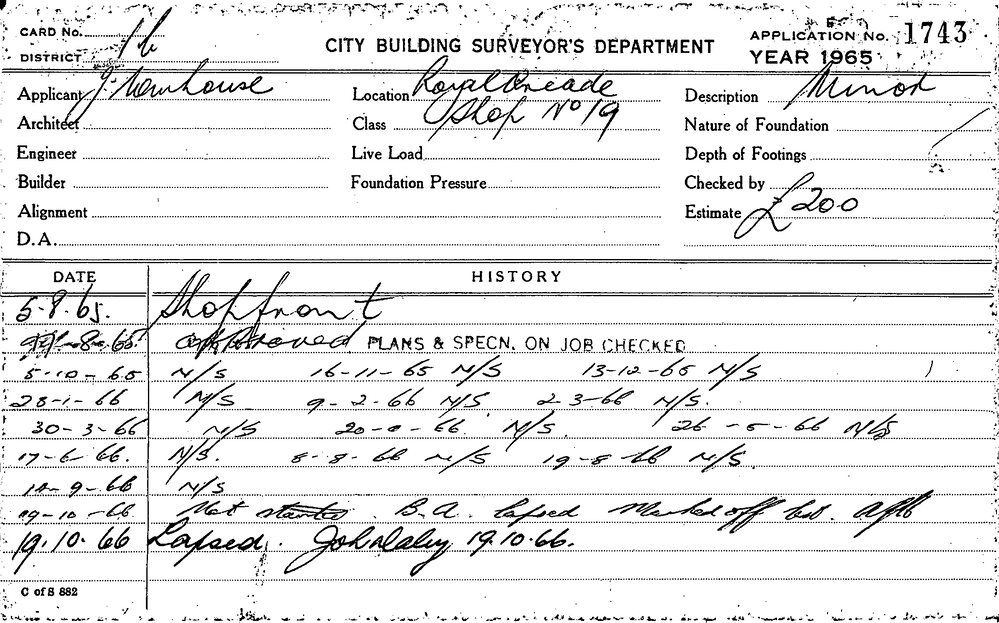 CARD No.
DISTRICT
CITY BUILDING SURVEYOR'S DEPARTMENT
APPLICATION No. 1743
YEAR 1965
Applicant J. Newhouse Location Royal Arcade Description Minor
Architect Class Shop No 19 Nature of Foundation
Engineer Live Load Depth of Footings
Builder Foundation Pressure Checked by
Alignment Estimate £200
D.A.
DATE HISTORY
5.8.65. Shopfront
-8-65 approved PLANS & SPECN. ON JOB CHECKED
5-10-65 N/S 16-11-65 N/S 13-12-65 N/S
28-1-66 N/S 9-2-66 N/S 2-3-66 N/S.
30-3-66 N/S N/S. 26-5-66 N/S
17-6-66. N/S. 8-8-66 N/S 19-8-66 N/S.
-9-66 N/S
19-10-66 Not started. B.A. lapsed Marked off
19.10.66 Lapsed. John Daley 19.10.66.
C of S 882